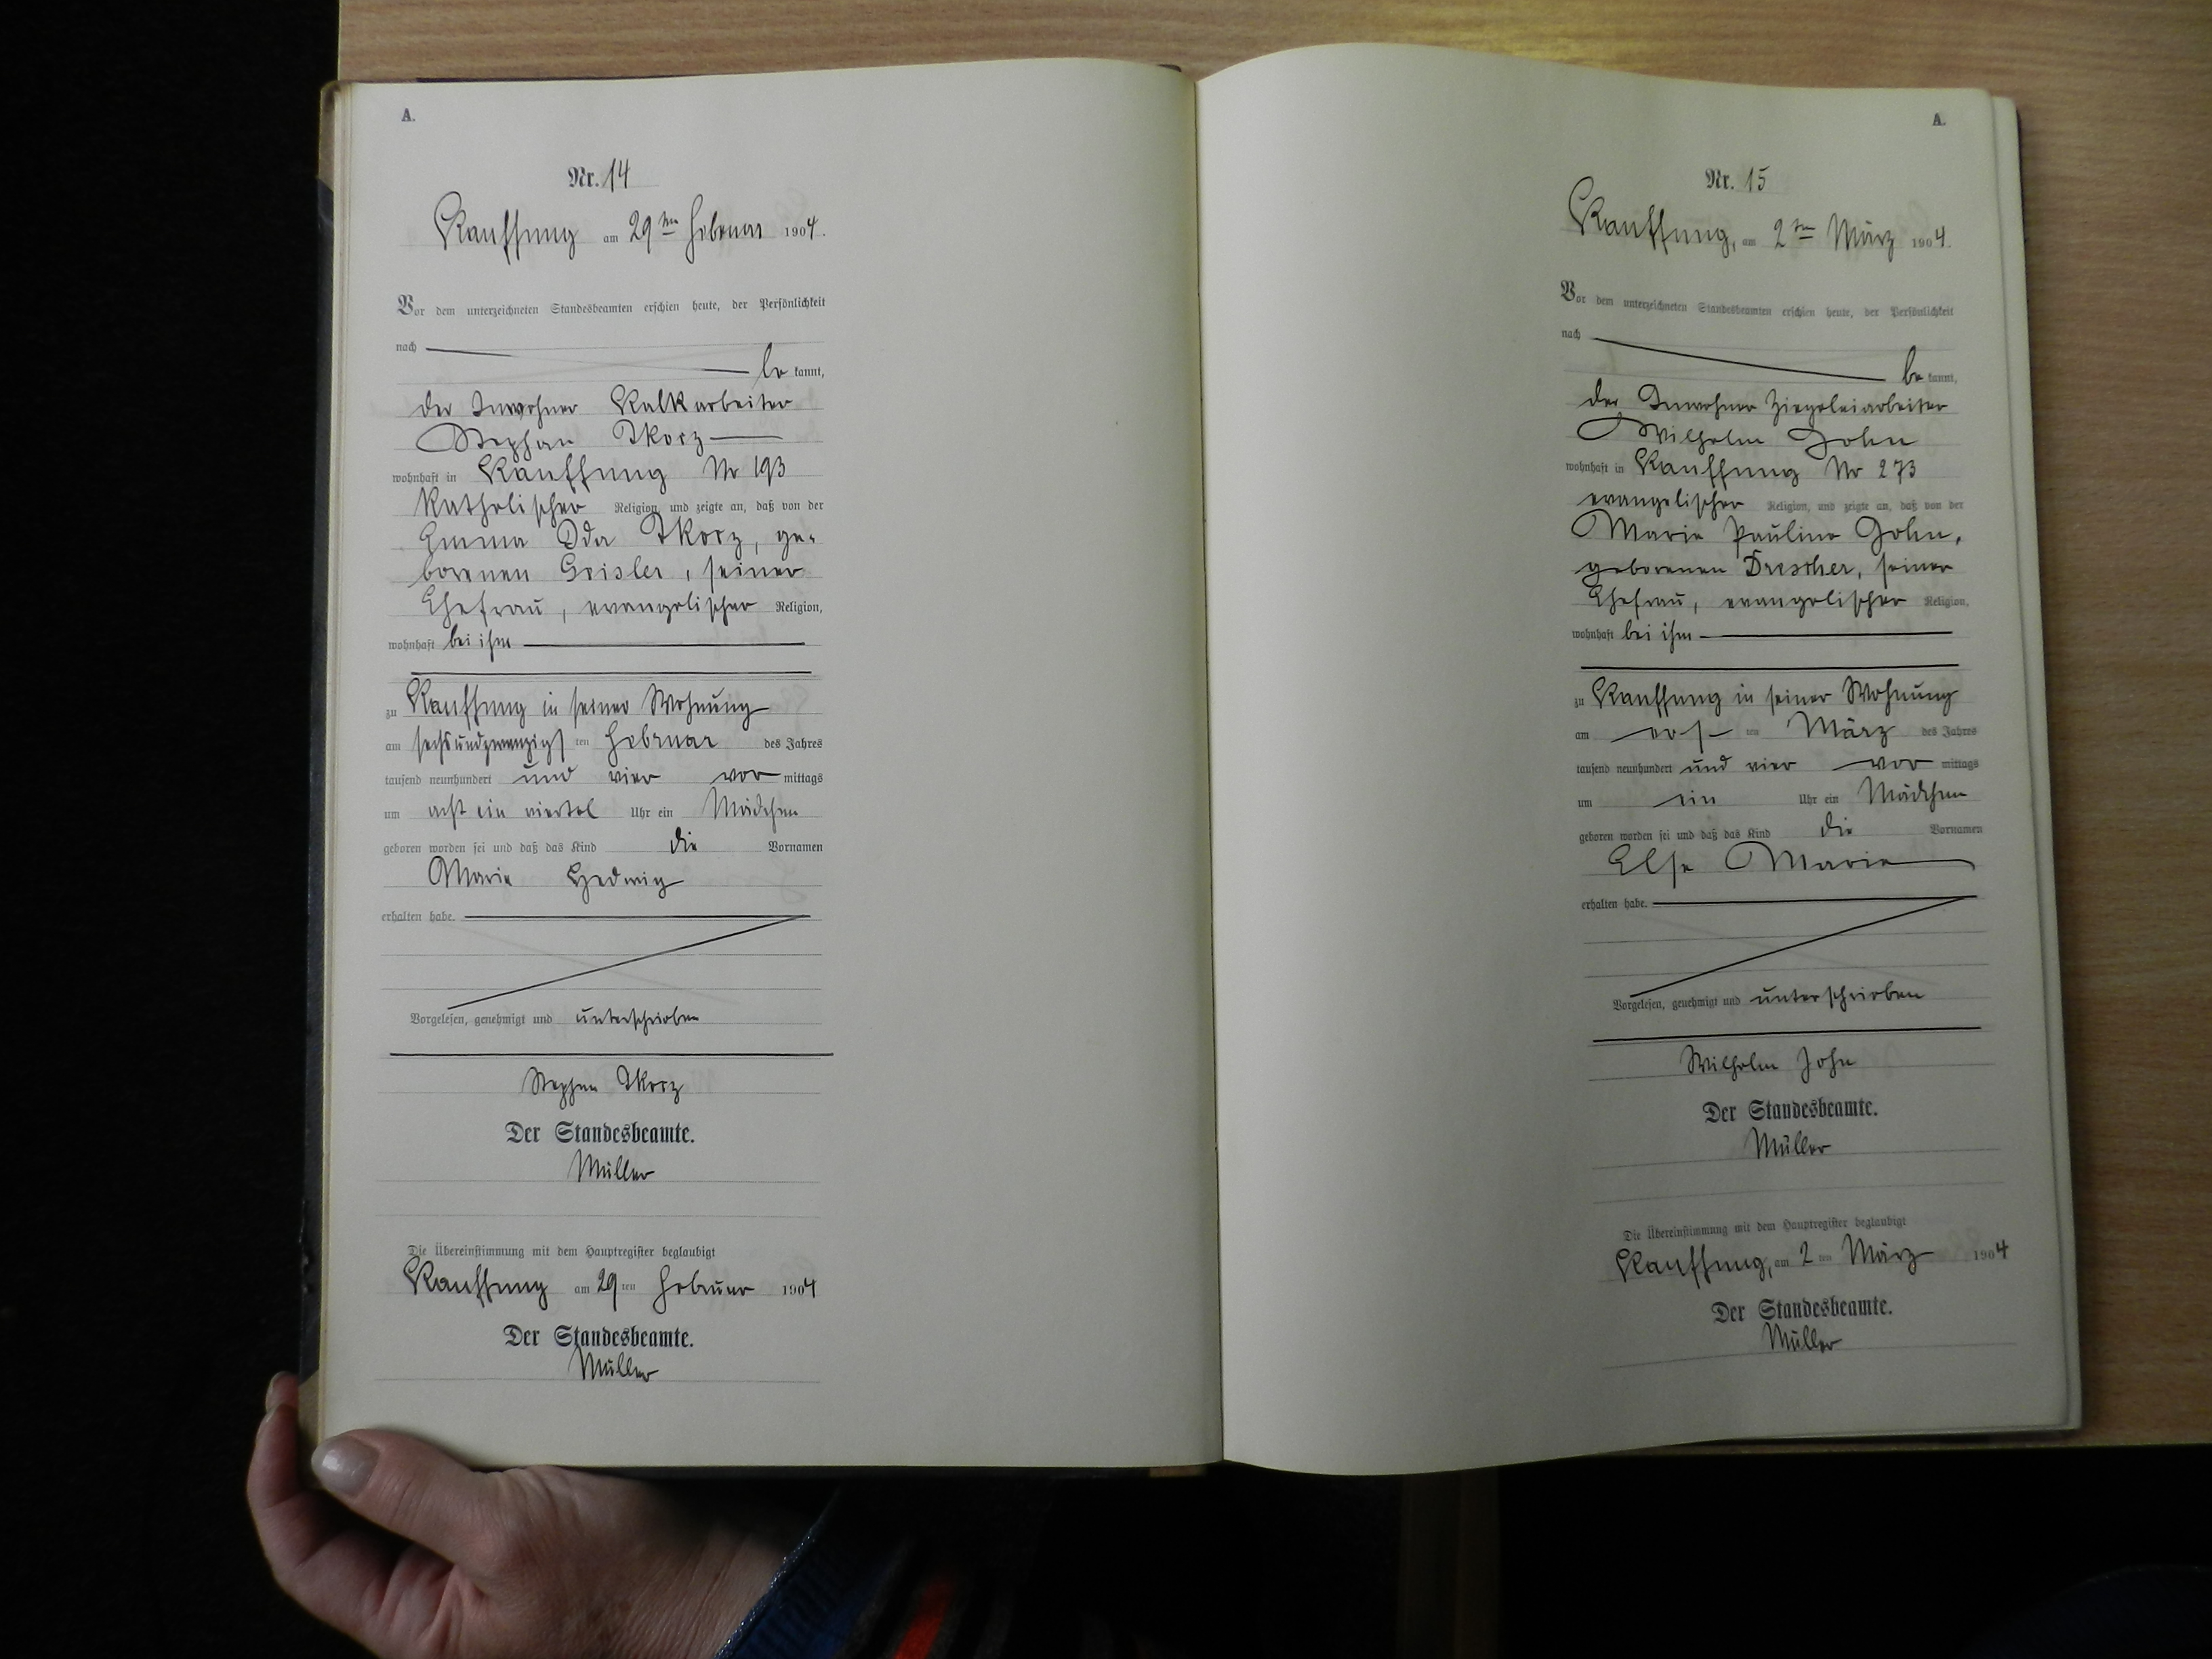 A.
Nr. 14
Kauffung am 29ten Februar 1904.
Vor dem unterzeichneten Standesbeamten erschien heute, der Persönlichkeit
nach
be kannt,
der Inwohner Kalkarbeiter
Stephan Skorz
wohnhaft in Kauffung Nr 193
katholischer Religion, und zeigte an, daß von der
Emma Ida Skorz, ge-
borenen Geisler, seiner
Ehefrau, evangelischer Religion,
wohnhaft bei ihm
zu Kauffung in seiner Wohnung
am sechsundzwanzigsten Februar des Jahres
tausend neunhundert und vier vor mittags
um acht ein viertel Uhr ein Mädchen
geboren worden sei und daß das Kind die Vornamen
Marie Hedwig
erhalten habe.
Vorgelesen, genehmigt und unterschrieben
Stephan Skorz
Der Standesbeamte.
Müller
Die Übereinstimmung mit dem Hauptregister beglaubigt
Kauffung am 29ten Februar 1904
Der Standesbeamte.
Müller
A.
Nr. 15
Kauffung, am 2ten März 1904.
Vor dem unterzeichneten Standesbeamten erschien heute, der Persönlichkeit
nach
be kannt,
der Inwohner Ziegeleiarbeiter
Wilhelm John
wohnhaft in Kauffung Nr 273
evangelischer Religion, und zeigte an, daß von der
Marie Pauline John,
geborenen Drescher, seiner
Ehefrau, evangelischer Religion,
wohnhaft bei ihm
zu Kauffung in seiner Wohnung
am ersten März des Jahres
tausend neunhundert und vier vor mittags
um ein Uhr ein Mädchen
geboren worden sei und daß das Kind die Vornamen
Else Marie
erhalten habe.
Vorgelesen, genehmigt und unterschrieben
Wilhelm John
Der Standesbeamte.
Müller
Die Übereinstimmung mit dem Hauptregister beglaubigt
Kauffung, am 2ten März 1904
Der Standesbeamte.
Müller